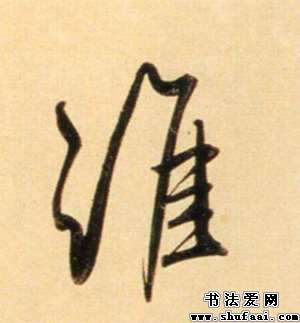 淮
书法爱网
www.shufaai.com